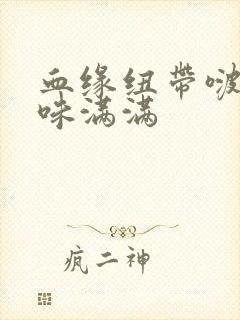 血缘纽带啵
咪满满
疯二神